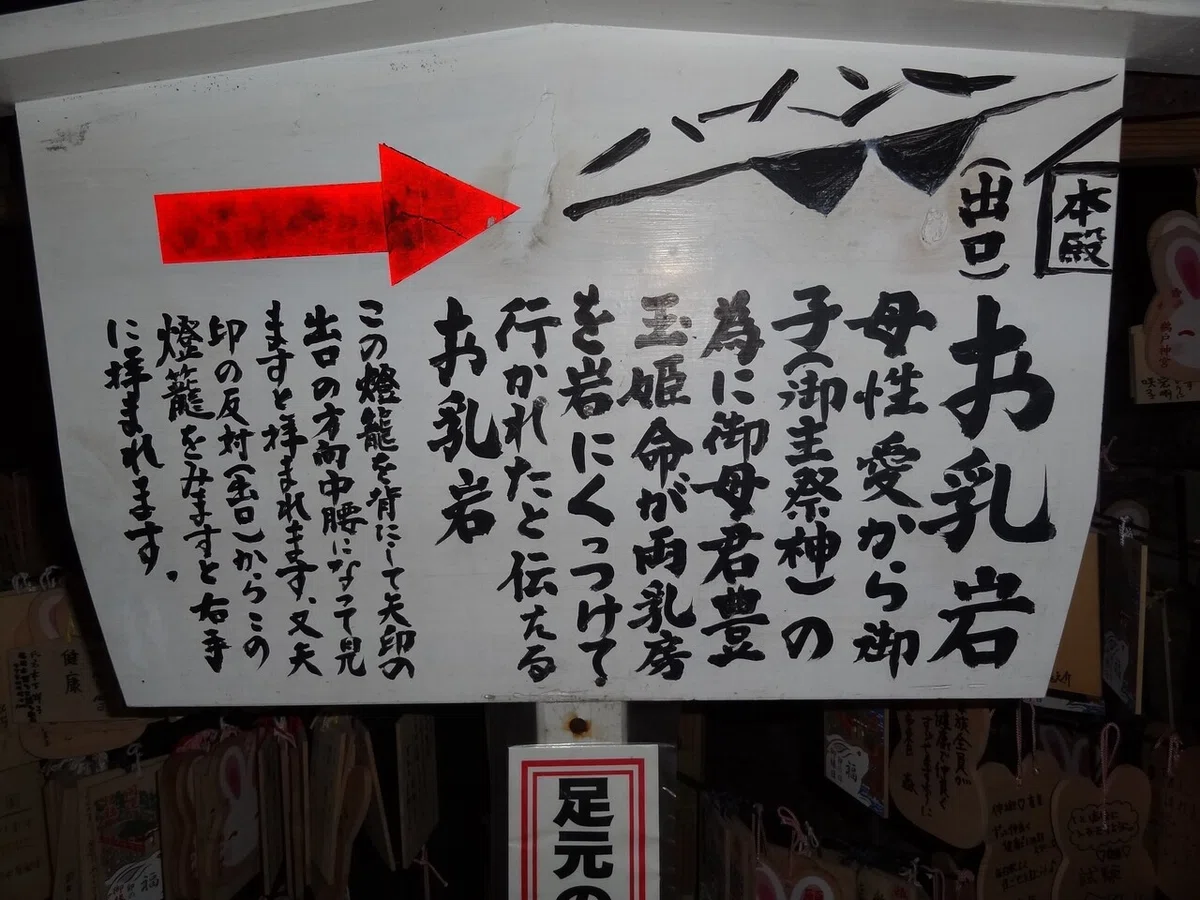 本殿
(出口)
お乳岩
母性愛から御
子(御主祭神)の
為に御母君豊
玉姫命が両乳房
を岩にくっつけて
行かれたと伝える
お乳岩
この燈籠を背にして矢印の
出口の方向中腰になって見
ますと拝まれます、又矢
印の反対(出口)からこの
燈籠をみますと右手
に拝まれます。
足元の
健康
福
福
鵜戸神宮